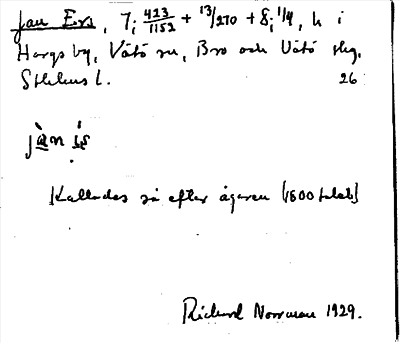 Jan Ers, 7; 423/1152 + 13/270 + 8; 1/4, h i
Hargs by, Vätö sn, Bro och Vätö skg,
Sthlms l. 26
jàn ís
Kallades så efter ägaren (1800 talet)
Richard Norrman 1929.